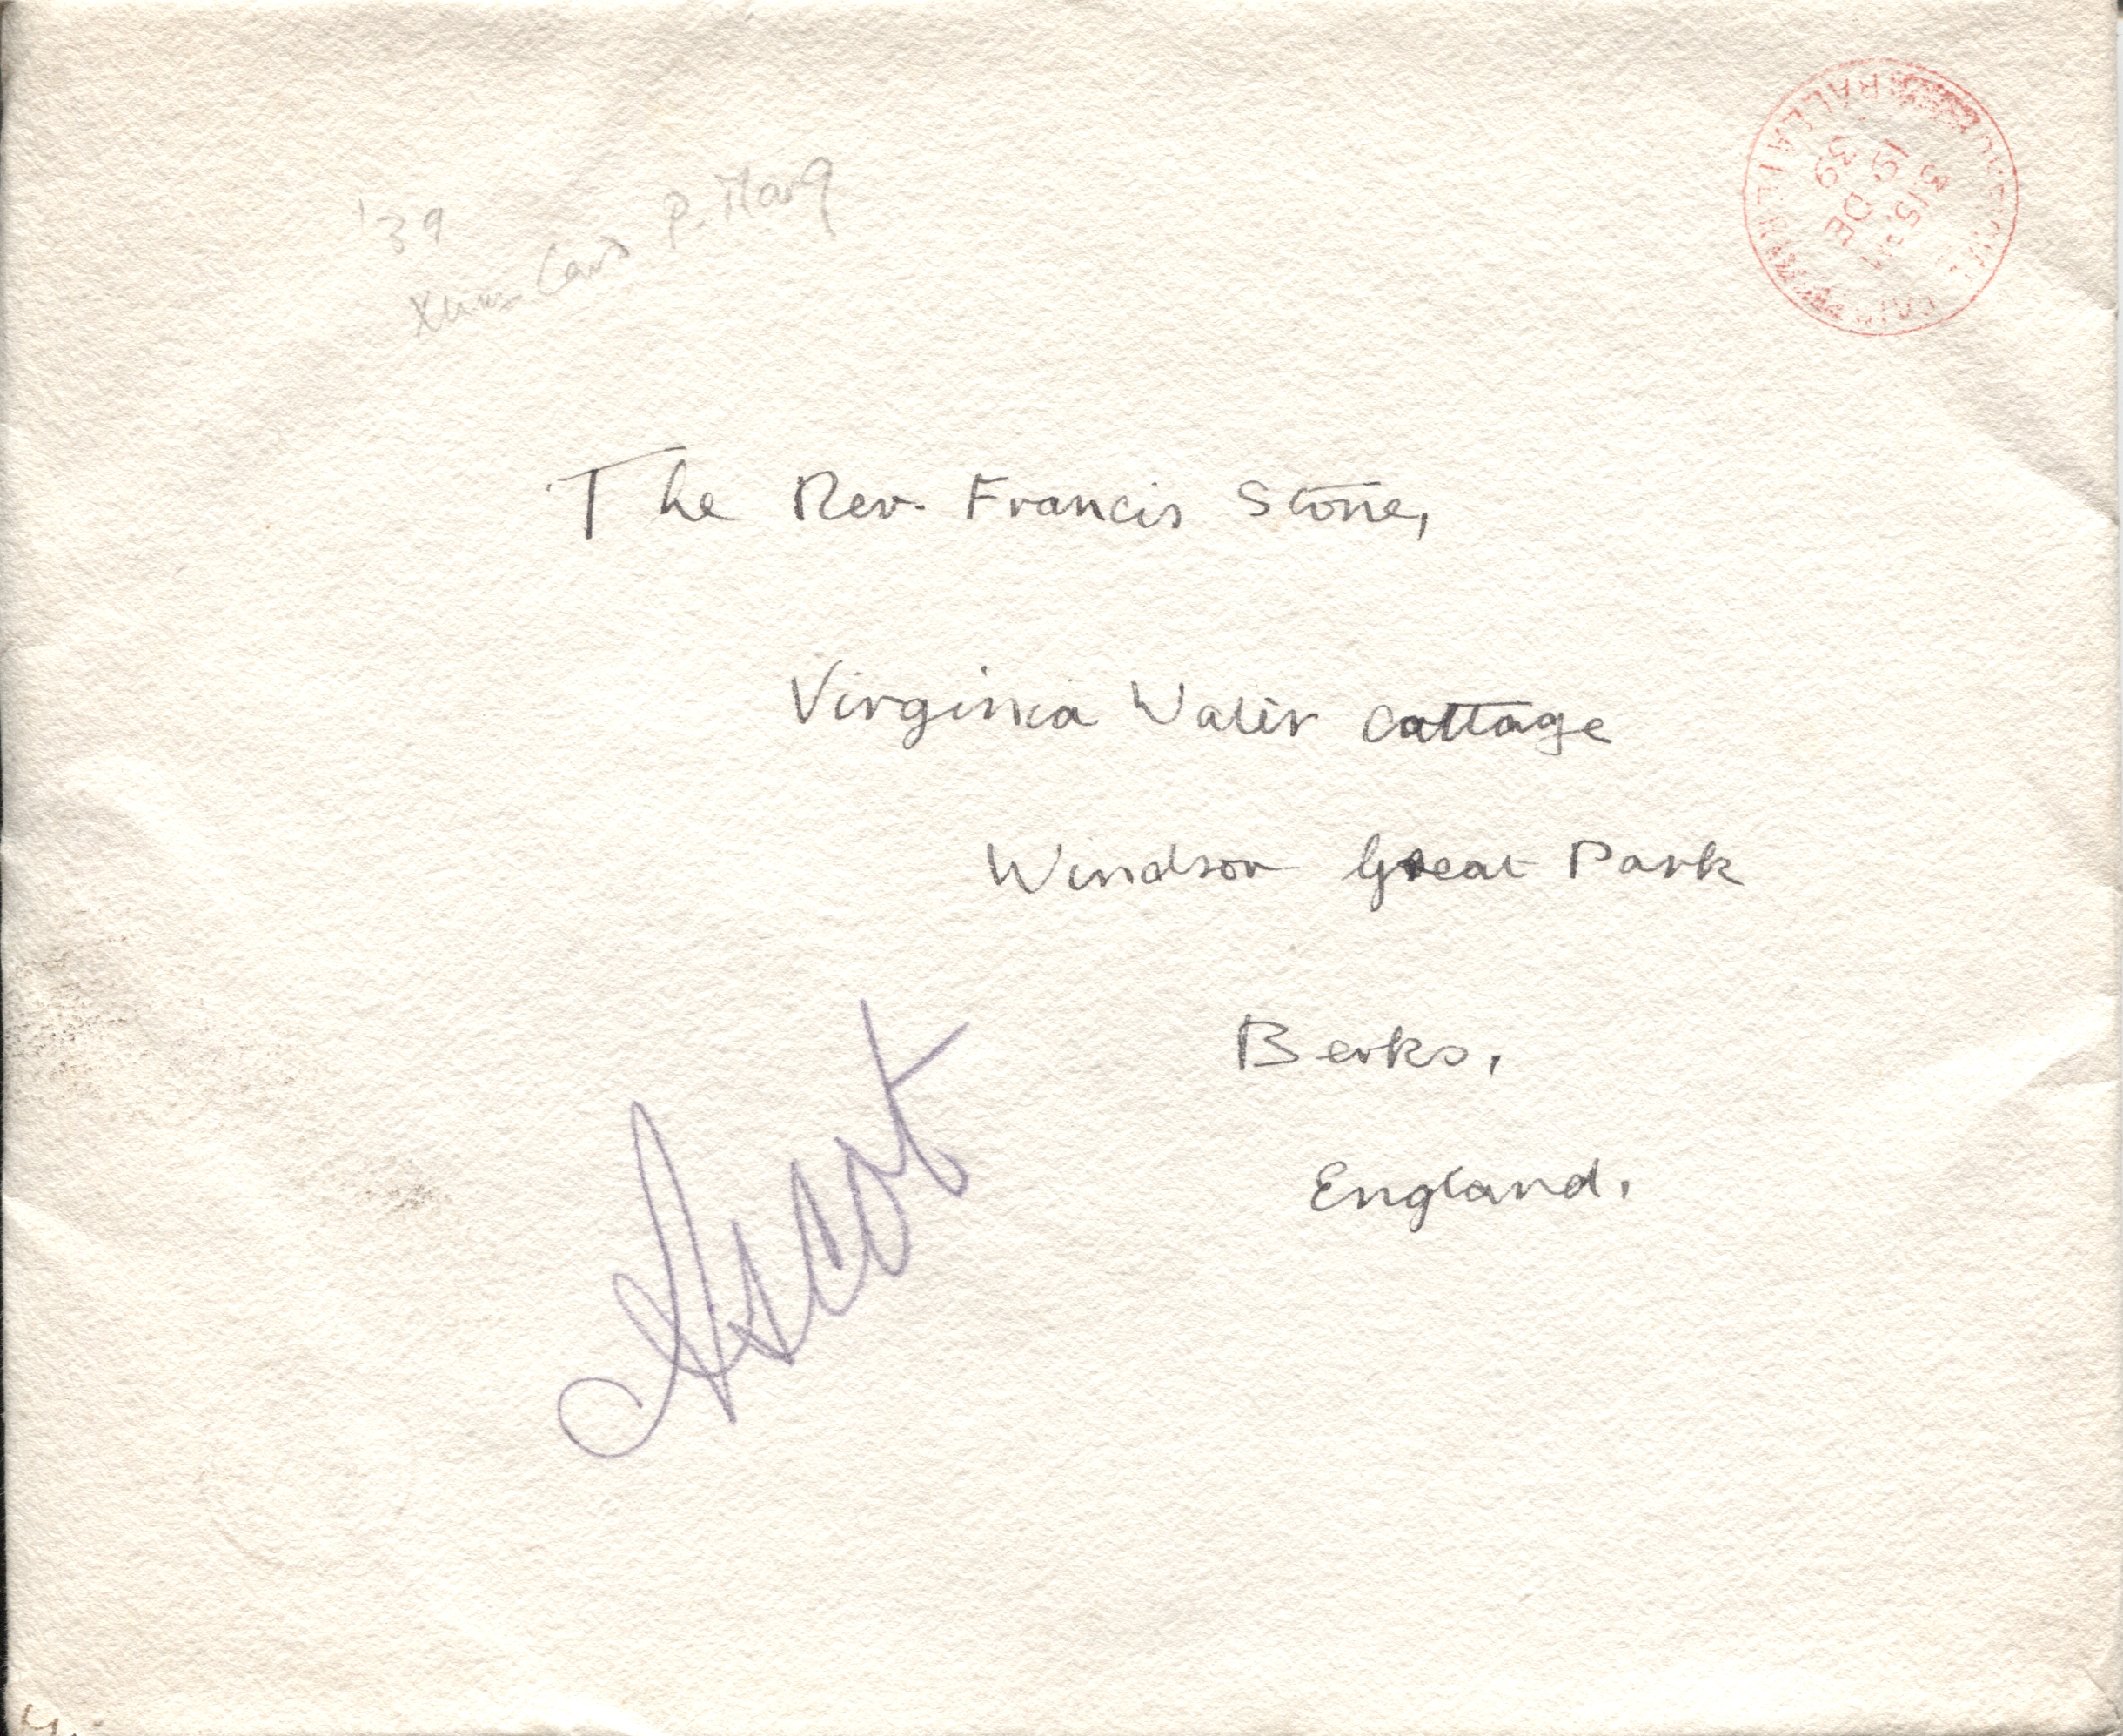 '39
Xmas Card P. Mary
3.15 PM
19 DE
39
The Rev. Francis Stone,
Virginia Water Cottage
Windsor Great Park
Berks,
England.
Ascot